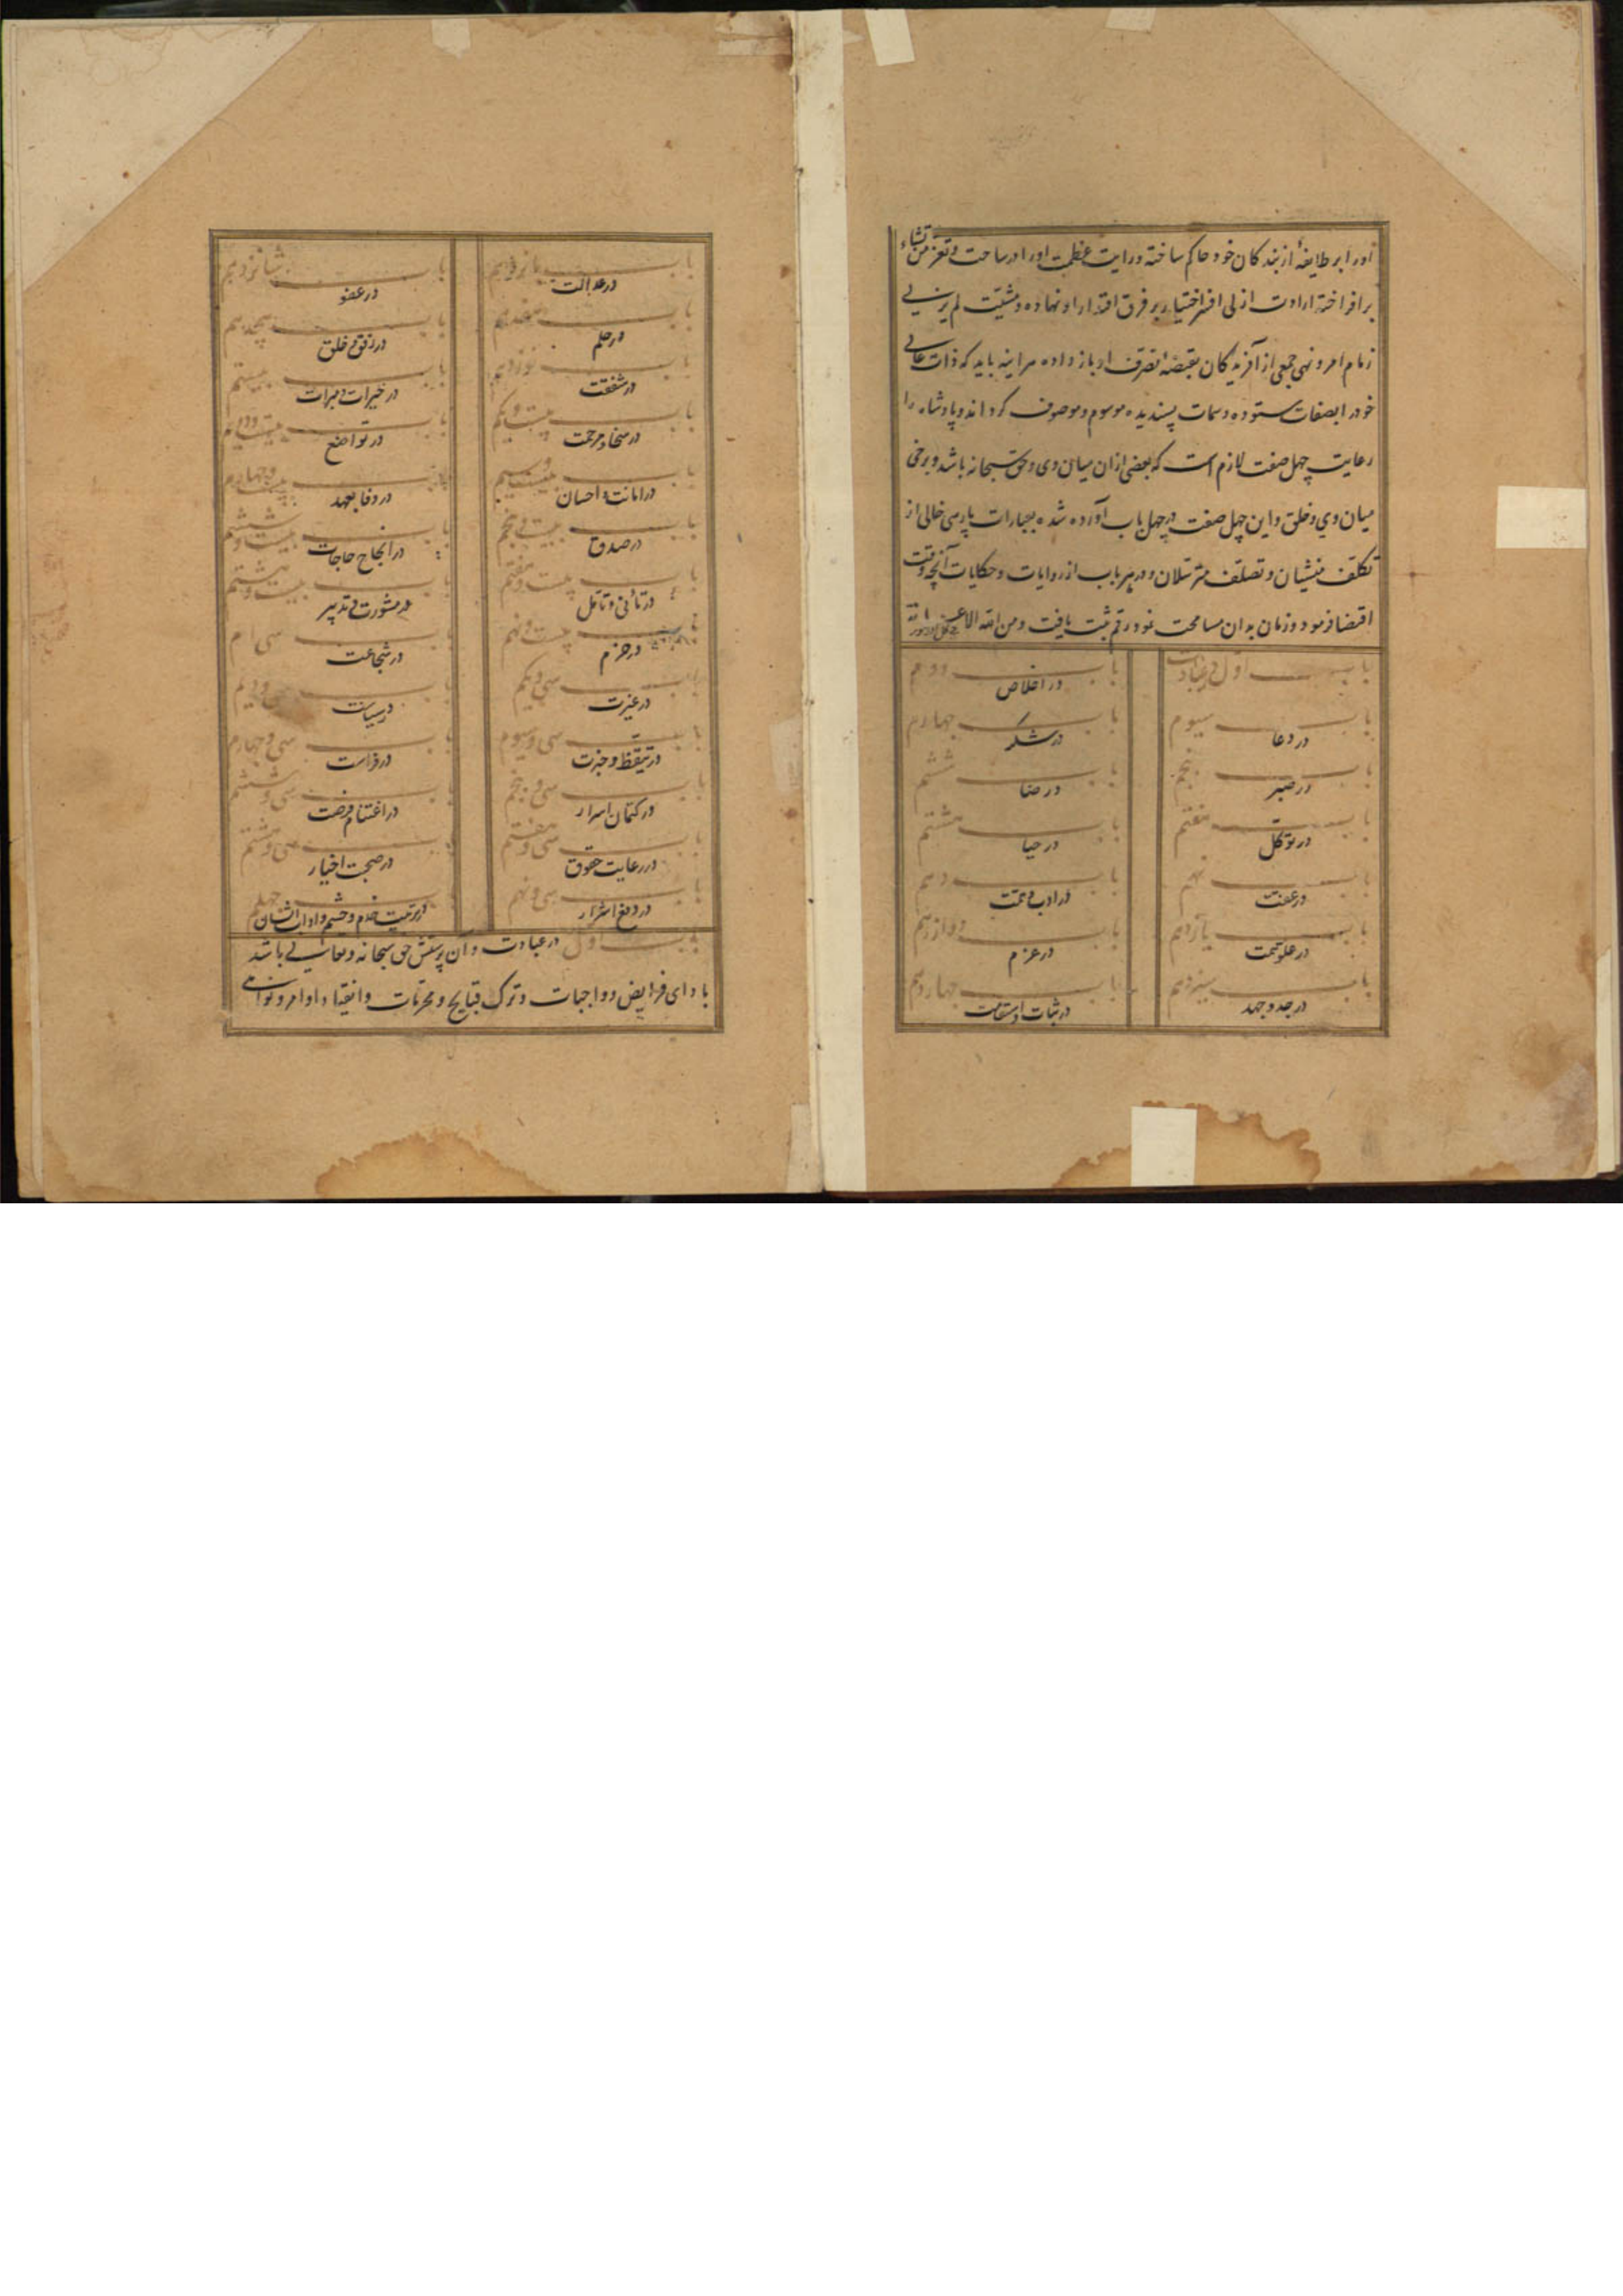 او را بر طایفهٔ از بندکان خود حاکم ساخته و رایت عظمت او را در ساحت و تعز من تشاء
برافراخته ارادت ازلی افسر اختیار بر فرق اقتدار او نهاده و مشیّت لم یزلی
زمام امر و نهی جمعی از آفریدکان بقبضهٔ تصرف او باز داده هراینه باید که ذات عالی
خود را بصفات ستوده و سمات پسندیده موسوم و موصوف کرداند و پادشاه را
رعایت چهل صفت لازم است که بعضی ازان میان وی و حق سبحانه باشد و برخی
میان وی و خلق و این چهل صفت در چهل باب آورده شده بعبارات پارسی خالی از
تکلف منشیان و تصلف مترسلان و در هر باب از روایات و حکایات آنچه وقت
اقتضا فرمود و زمان بدان مسامحت نمود رقم ثبت یافت و من الله الاعانه
باب اول در عبادت
باب دوم
در اخلاص
باب سیوم
در دعا
باب چهارم
در شکر
باب پنجم
در صبر
باب ششم
در رضا
باب هفتم
در توکل
باب هشتم
در حیا
باب نهم
در عفت
باب دهم
در ادب
باب یازدهم
در علو همت
باب دوازدهم
در عزم
باب سیزدهم
در جد و جهد
باب چهاردهم
در ثبات و استقامت
باب پانزدهم
در عدالت
باب شانزدهم
در عفو
باب هفدهم
در حلم
باب هجدهم
در رفق و خلق
باب نوزدهم
در شفقت
باب بیستم
در خیرات و مبرات
باب بیست و یکم
در سخا و مرحمت
باب بیست و دوم
در تواضع
باب بیست و سیم
در امانت و احسان
باب بیست و چهارم
در وفا بعهد
باب بیست و پنجم
در صدق
باب بیست و ششم
در انجاح حاجات
باب بیست و هفتم
در تانی و تامل
باب بیست و هشتم
در مشورت و تدبیر
باب بیست و نهم
در حزم
باب سی ام
در شجاعت
باب سی و یکم
در غیرت
باب سی و دوم
در سیاست
باب سی و سیوم
در تیقظ و خبرت
باب سی و چهارم
در فراست
باب سی و پنجم
در کتمان اسرار
باب سی و ششم
در اغتنام فرصت
باب سی و هفتم
در رعایت حقوق
باب سی و هشتم
در صحبت اخیار
باب سی و نهم
در دفع اشرار
باب چهلم
در تربیت خدم و حشم و اداب ایشان
باب اول در عبادت و آن پرستش حق سبحانه و تعالی باشد
با دای فرایض و واجبات و ترک قبایح و محرمات و انقیاد اوامر و نواهی